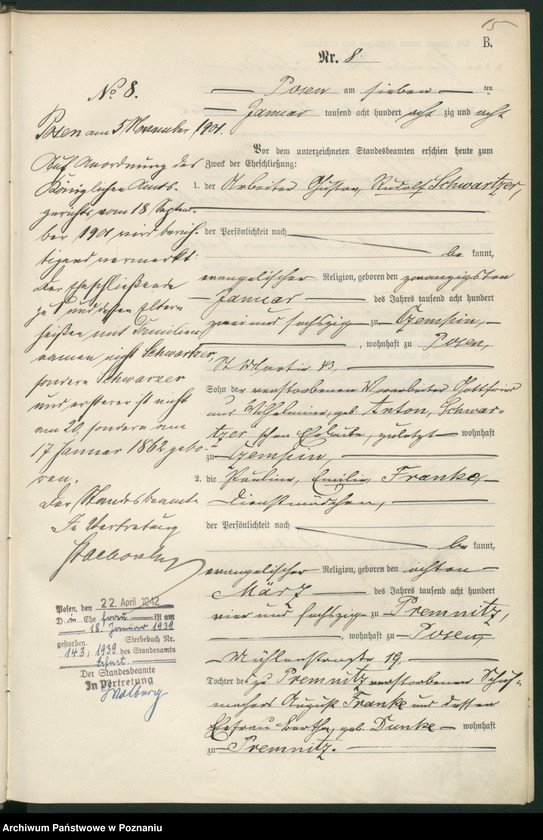 15
B.
Nr. 8.
Posen am sieben ten
Januar tausend acht hundert acht zig und acht
Vor dem unterzeichneten Standesbeamten erschien heute zum
Zweck der Eheschließung:
1. der Arbeiter Gustav, Rudolf Schwartzer,
der Persönlichkeit nach
be kannt,
evangelischer Religion, geboren den zwanzigsten
Januar des Jahres tausend acht hundert
zwei und sechszig zu Czempin,
, wohnhaft zu Posen,
St Martin 43,
Sohn der verstorbenen Gottfried
und Wilhelmine, geb. Anton, Schwar-
tzer'schen Eheleute, zuletzt wohnhaft
zu Czempin,
2. die Pauline, Emilie, Franke,
Dienstmädchen,
der Persönlichkeit nach
be kannt,
evangelischer Religion, geboren den achten
März des Jahres tausend acht hundert
vier und sechszig zu Premnitz,
, wohnhaft zu Posen,
Mühlenstraße 19.
Tochter des zu Premnitz verstorbenen Schuh-
machers August Franke und dessen
Ehefrau Bertha, geb. Dunke wohnhaft
zu Premnitz.
No 8.
Posen am 5 November 1901.
Auf Anordnung des
Königlichen Amts-
gerichts vom 18 Septem-
ber 1901 wird berich-
tigend vermerkt:
Der Eheschließende
zu 1 und dessen Eltern
heißen mit Familien-
namen nicht Schwartzer,
sondern Schwarzer
und ersterer ist nicht
am 20. sondern am
17 Januar 1862 gebo-
ren.
Der Standesbeamte
In Vertretung
Posen, den 22. April 1942
D ie Ehefrau ist am
18. Januar 1939
gestorben. Sterbebuch Nr.
143/1939 des Standesamts
Erfurt
Der Standesbeamte
In Vertretung
Archiwum Państwowe w Poznaniu